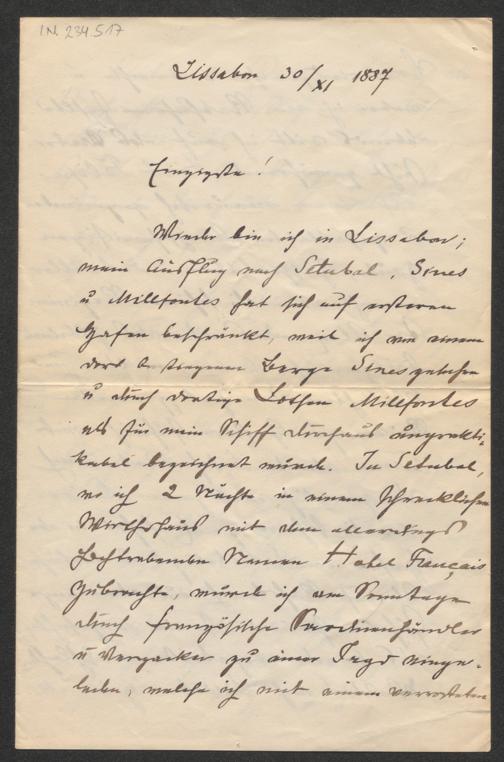 I.N. 234.517
Lissabon 30/XI 1887
Einzigste!
Wieder bin ich in Lissabon;
mein Ausflug nach Setubal, Sines
u Millfontes hat sich auf ersteren
Hafen beschränkt, weil ich von einem
dort Berge Sines gesehen
u durch dortige Lothsen Millfontes
als für mein Schiff durchaus unprakti-
kabel bezeichnet wurde. In Setubal,
wo ich 2 Nächte in einem schrecklichen
Wirthshaus mit dem allerdings
hochtrabenden Namen Hotel Français
zubrachte, wurde ich am Sonntage
durch französische Sardinenhändler
u Verpacker zu einer Jagd einge-
laden, welche ich mit einem verrosteten